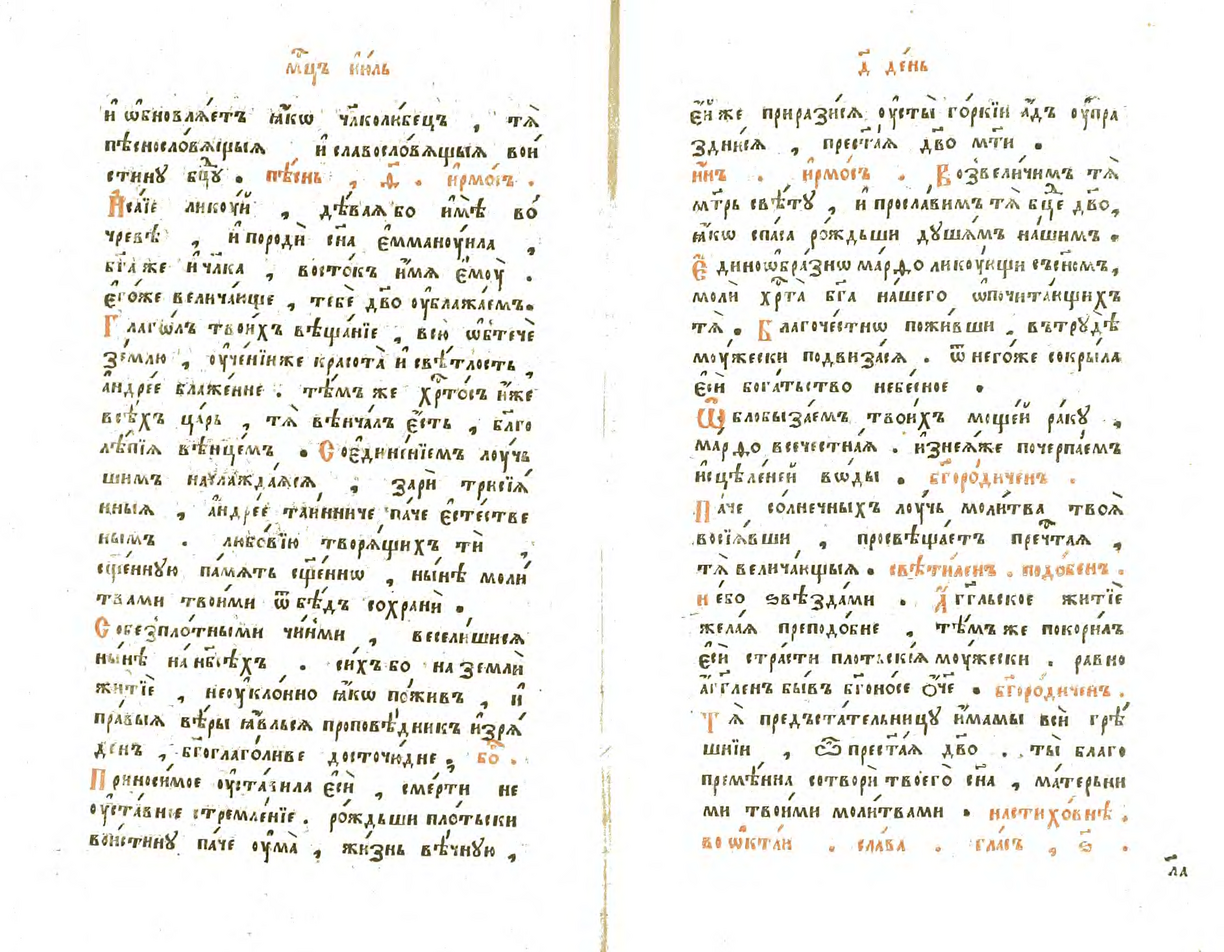 мⷭ҇цъ ию́ль
и҆ ѡ҆бновлѧ́етъ ꙗ҆́кѡ чл҃колю́бецъ , тѧ̀
пѣснословѧ́щыѧ и҆ славосло́вѧщыѧ вои́
стинꙋ бцⷣꙋ . пѣ́снь , ѳ҃ . і҆рмо́съ .
И҆са́їе ликꙋ́й , дѣ́ваѧ бо и҆мѣ̀ во
чре́вѣ , и҆ породѝ сн҃а є҆ммануи́ла ,
бг҃а же и҆ чл҃ка , восто́къ и҆́мѧ є҆моу̀ .
є҆го́же велича́юще , тебѐ дв҃о оу҆блажа́емъ .
Глаго́лъ твои́хъ вѣща́нїе , всю ѡ҆бтечѐ
зе́млю , оу҆че́нїѧже красота̀ и҆ свѣ́тлость ,
а҆ндре́е блаже́нне . тѣ́мъ же хрⷭ҇то́съ и҆́же
всѣ́хъ ца́рь , тѧ̀ вѣнча́лъ є҆́сть , бл҃го
лѣ́пїѧ вѣнце́мъ . Соедине́нїемъ лоу́чь
шимъ наслажда́ѧсѧ , зарѝ трисїѧ́
нныѧ , а҆ндре́е таи́нниче па́че є҆сте́стве
нымъ . любо́вїю творѧ́щихъ тѝ ,
сщ҃е́ннꙋю па́мѧть сщ҃е́ннѡ , ны́нѣ моли́
твами твои́ми ѿ бѣ́дъ сохранѝ .
Собезпло́тными чи́нми , весели́шисѧ
ны́нѣ на нб҃сѣ́хъ . си́хъ бо на землѝ
житїѐ , неоукло́нно ꙗ҆́кѡ пожи́въ , и҆
пра́выѧ вѣ́ры ꙗ҆ви́лъсѧ проповѣ́дникъ и҆зрѧ́
денъ , бг҃оглаго́ливе досточю́дне , бо҃ .
Приноси́мое оу҆ста́вила є҆сѝ , сме́рти не
оу҆ста́вное стремле́нїе . ро́ждьши пло́тьски
вои́стинꙋ па́че оу҆ма̀ , жи́знь вѣ́чнꙋю ,
д҃ де́нь
є҆́йже прирази́сѧ оу҆сты̀ го́ркїи а҆́дъ оу҆пра
здни́сѧ , прест҃а́ѧ дв҃о мт҃и .
и҆́нъ . і҆рмо́съ . Возвели́чимъ тѧ̀
мт҃рь свѣ́тꙋ , и҆ просла́вимъ тѧ̀ бцⷣе дв҃о ,
ꙗ҆́кѡ спа́са ро́ждьши дꙋша́мъ на́шимъ .
Є҆динѡѡ́бразнѡ ма́рѳо ликоу́ющи съ сн҃омъ ,
молѝ хрⷭ҇та̀ бг҃а на́шего ѡ҆ почита́ющихъ
тѧ̀ . Благоче́стнѡ пожи́вши , въ трꙋдѣ̀
моу́жески подвиза́сѧ . ѿ него́же сокры́ла
є҆сѝ бога́тьство небе́сное .
Ѡ҆блобыза́емъ твои́хъ моще́й ра́кꙋ ,
ма́рѳо всече́стна́ѧ . и҆з неѧ́же почерпа́емъ
и҆сцѣле́ней во́ды . бг҃оро́диченъ .
Па́че со́лнечныхъ лоу́чь моли́тва твоѧ̀
восїѧ́вши , просвѣща́етъ преч҃таѧ ,
тѧ̀ велича́ющыѧ . свѣти́ленъ . подо́бенъ .
не́бо ѕвѣзда́ми . А҆́гг҃льское житїѐ
жела́ѧ преподо́бне , тѣ́мъ же покори́лъ
є҆сѝ стра́сти пло́тьскїѧ моу́жески . равно
а҆́гг҃ленъ бы́въ бг҃оно́се ѻ҆́ч҃е . бг҃оро́диченъ .
Тѧ̀ предъста́тельницꙋ и҆́мамы всѝ грѣ́
шнїи , ѽ прест҃а́ѧ дв҃о . ты̀ благо
премѣ́нна сотворѝ твоего̀ сн҃а , ма́терьни
ми твои́ми моли́твами . на стихо́внѣ .
во ѻ҆кта́и . сла́ва . гла́съ , ѕ҃ .
л҃а